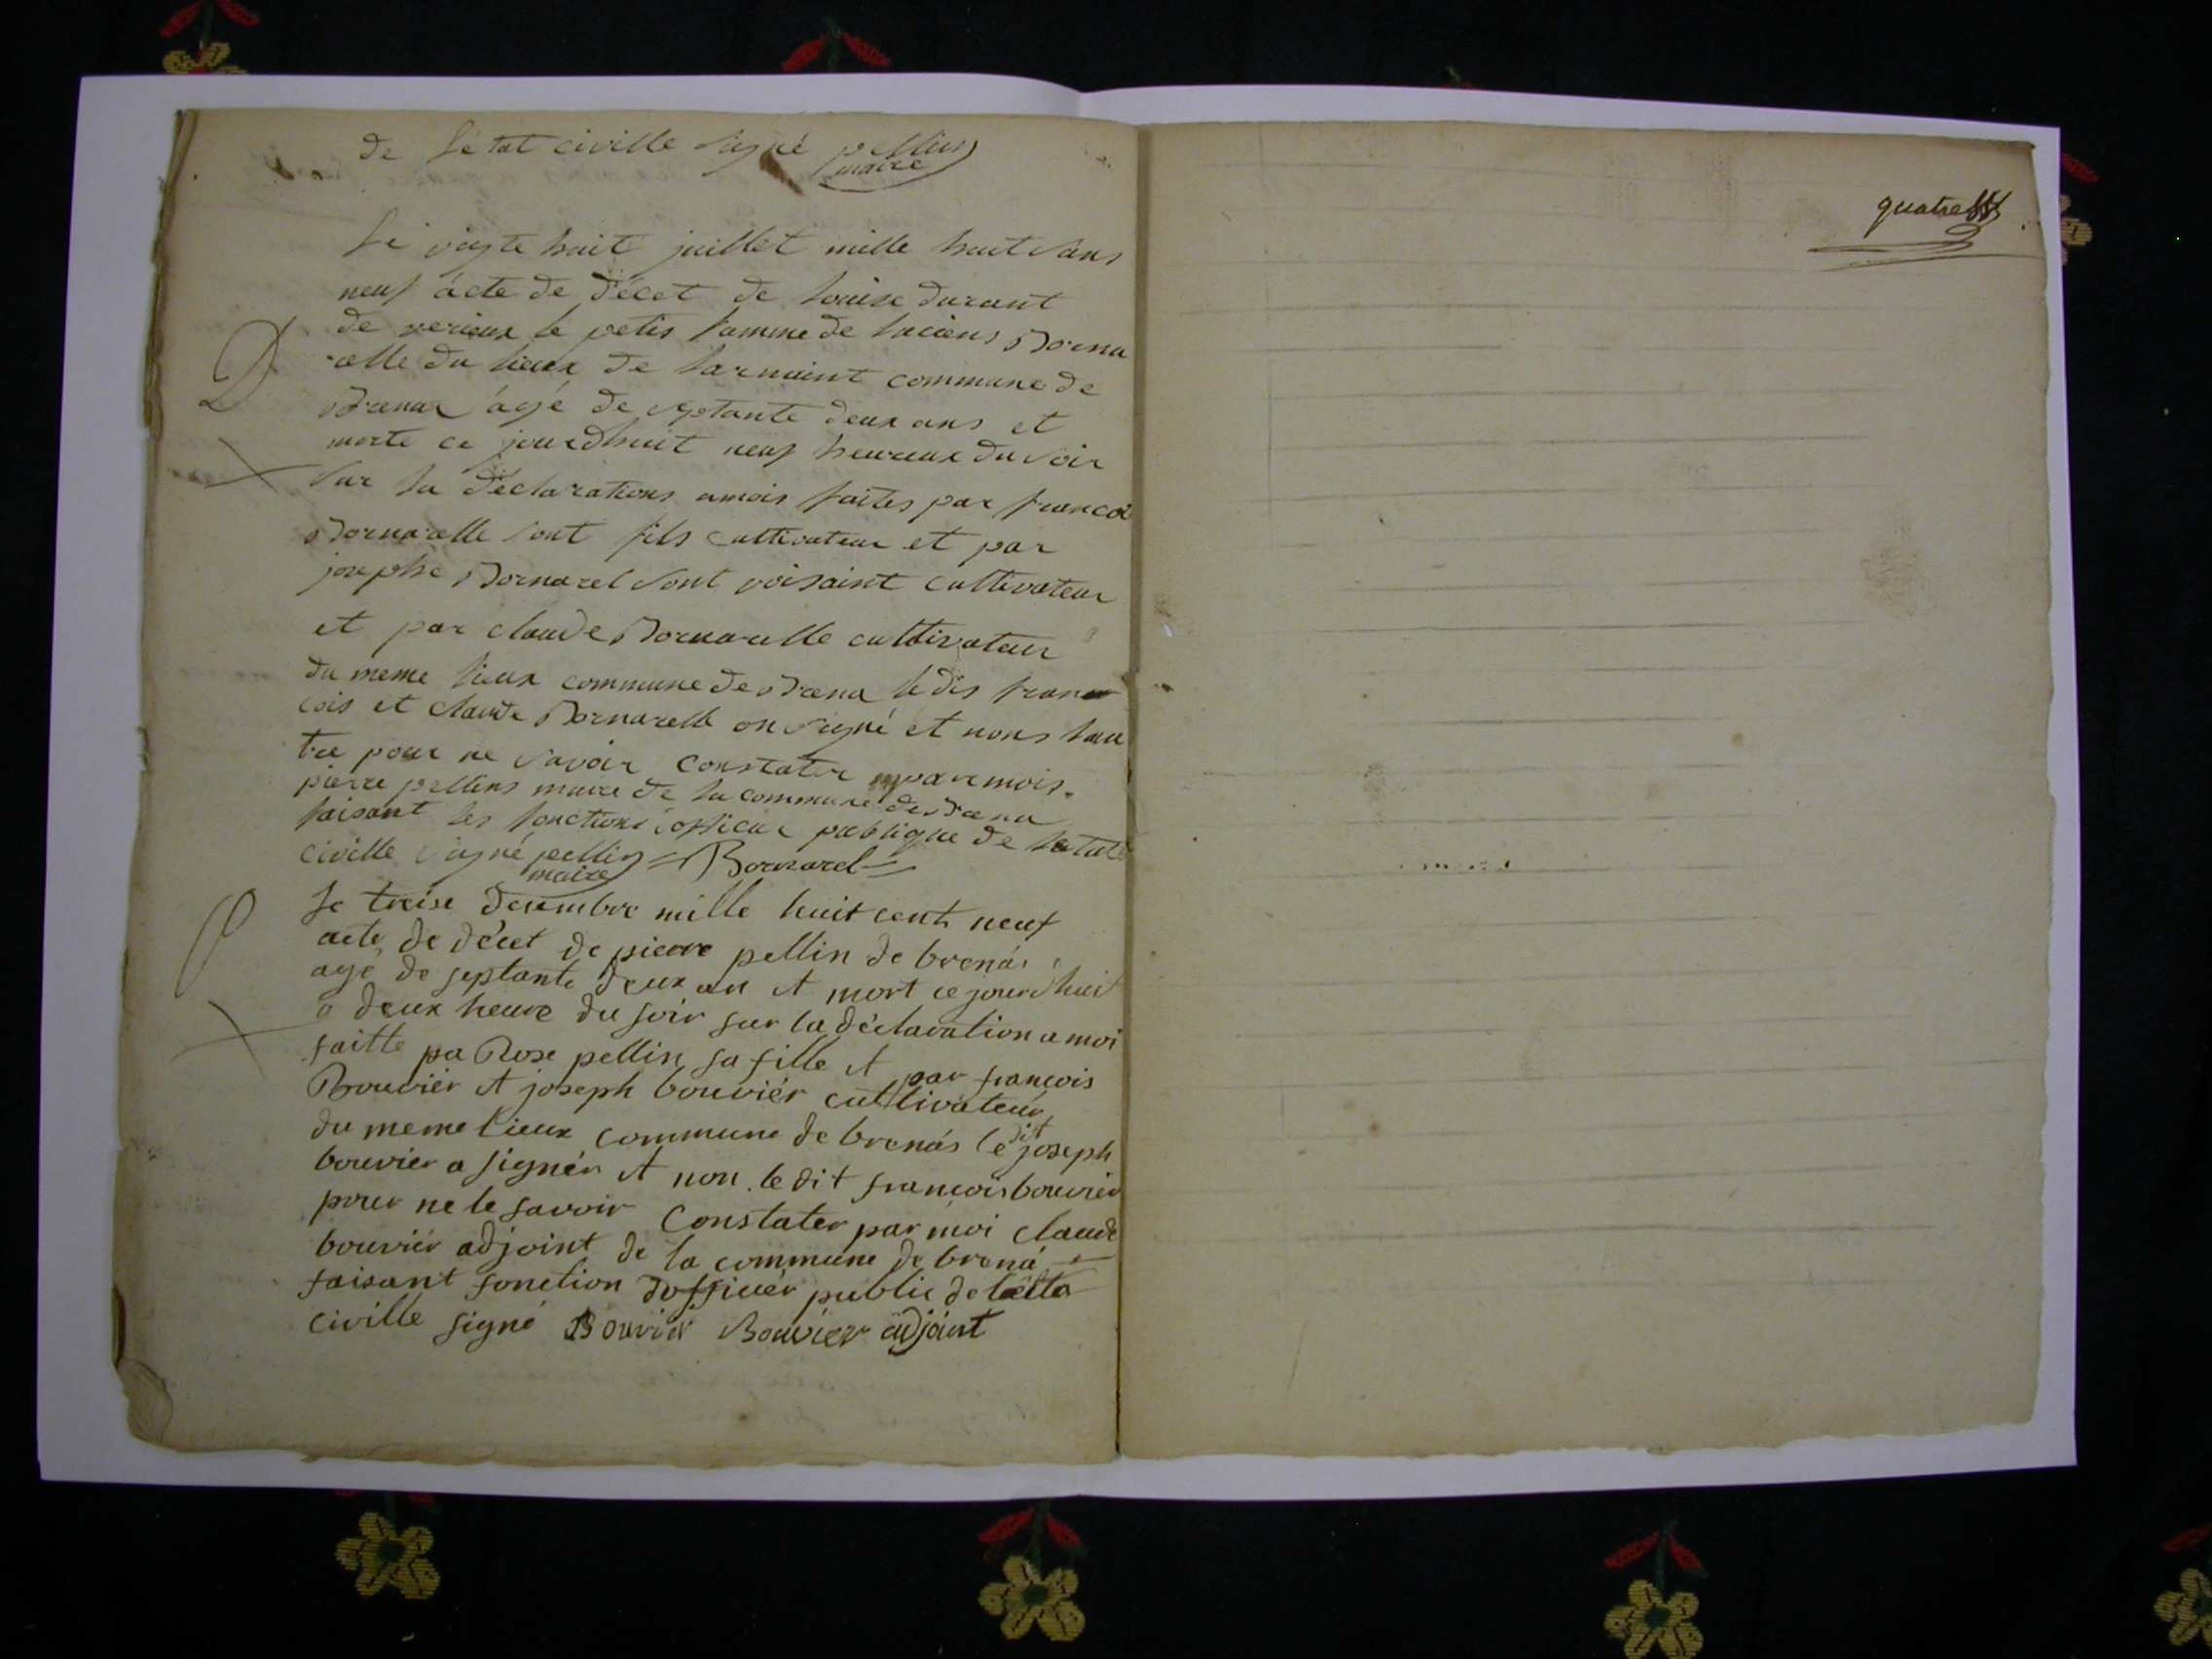 de létat civille signé pellin
maire
Le vingte huit juillet mille huit sans
neuf acte de décet de louise durant
de verieux le petis famme de luciens Borna
relle du lieux de larmient commune de
Brenas agé de septante deux ans et
morte ce jourdhuit neuf heureux du soir
sur la déclarations amois faites par francoi
Bornarelle sont fils cultivateur et par
josephe Bornarel sont voisaint cultivateur
et par claude Bornarelle cultivateur
du meme lieux commune de Brena le dis fran
cois et claude Bornarelle on signé et nons lau
tre pour ne savoir constater par mois
pierre pellins maire de la commune de Brena
faisant les fonctions officier publique de
civille signé pellin Bornarel
maire
Le treise desembre mille huit cent neuf
acte de décet de pierre pellin de brenás
agé de septante deux an et mort ce jourdhuit
a deux heure du soir sur la déclaration a moi
faitte pa Rose pellin sa fille et par françois
Bouviér et joseph bouviér cultivateur
du meme lieux commune de brenás le dit joseph
bouvier a signér et non le dit françois bouvier
pour ne le savoir Constater par moi claude
bouviér adjoint de la commune de brená
faisant fonction dofficiér public de
civille signé Bouvier Bouvier adjoint
quatre